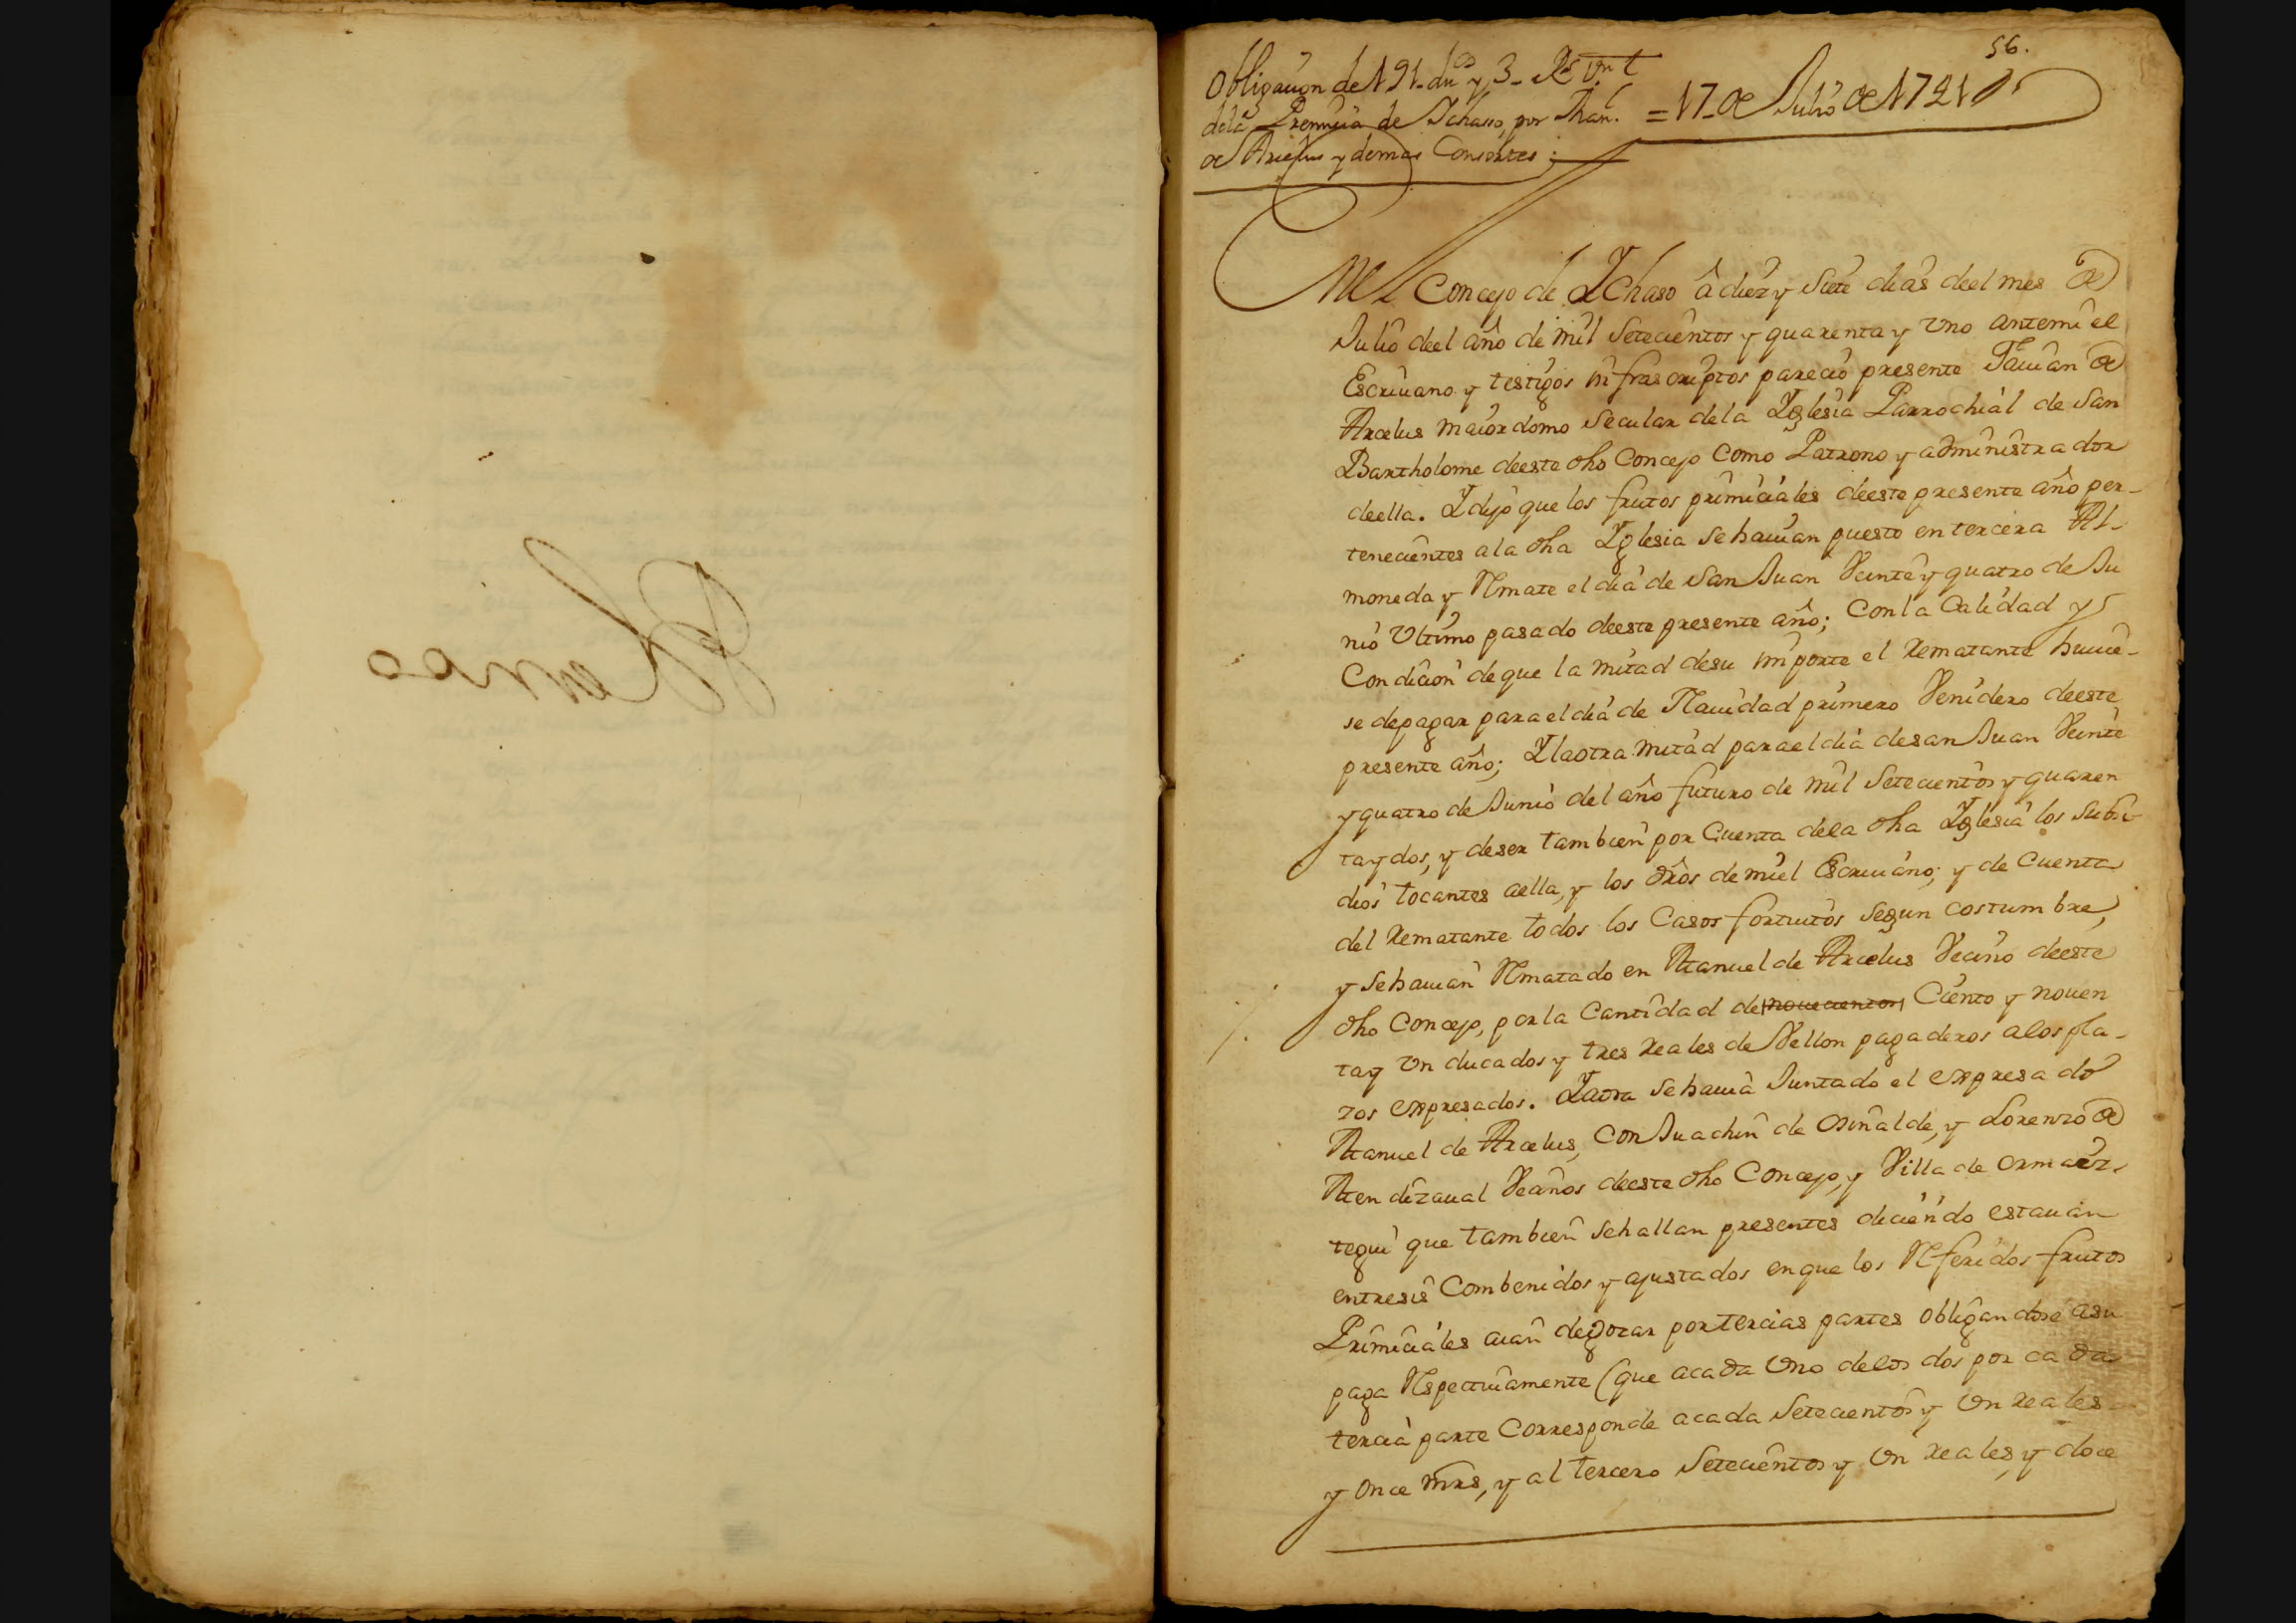 56.
Obligacion de 191. duos y 3. Rs. Vn.
dela Premicia de Ichaso, por Man.l = 17 de Julio de 1741
de Arcelus y demas Consortes;
En el Concejo de Ychaso â diez y Siete dias deel mes de
Julio deel año de mil Setecientos y quarenta y Uno antemi el
Escriuano y testigos infrascriptos parecio presente de
Arcelus maiordomo Secular dela Yglesia Parrochial de San
Bartholome deeste dho Concejo Como Patrono y administrador
deella. Y dijo que los frutos primiciales deeste presente año per-
tenecientes ala dha Yglesia Se hauian puesto en tercera Al-
moneda y Rmate el dia de San Juan Veinte y quatro de Ju
nio Ultimo pasado deeste presente año; Con la Calidad y
Condicion de que la mitad desu importe el Rematante huuie-
se de pagar para el dia de Nauidad primero Venidero deeste
presente año; Y la otra mitad para el dia de san Juan Veinte
y quatro de Junio del año futuro de mil Setecientos y quaren
ta y dos, y deser tambien por Cuenta dela dha Yglesia los Subsi-
dios tocantes aella, y los dros de mi el Escriuano; y de Cuenta
del Rematante todos los Casos fortuitos Segun costumbre,
y Se hauian Rmatado en Manuel de Arcelus Vecino deeste
dho Concejo, por la Cantidad de nouecientos Ciento y nouen
ta y Un ducados y tres Reales de Vellon pagaderos alos pla-
zos expresados. Y aora Se hauia Juntado el expresado
Manuel de Arcelus, Con Juachin de Osinalde, y Lorenzo de
Mendizaual Vecinos deeste dho Concejo, y Villa de Ormaiz-
tegui que tambien Se hallan presentes diciendo estauan
entresi Combenidos y ajustados en que los Rferidos frutos
Primiciales auian de gozar por tercias partes obligandose asu
paga Rspectiuamente (que acada Uno delos dos por cada
tercia parte Corresponde acada Setecientos y Un Reales
y once mrs, y al tercero Setecientos y Un Reales y doce